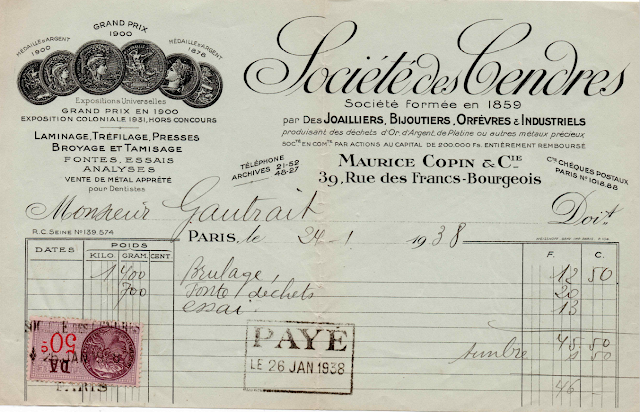 GRAND PRIX
1900
MÉDAILLE D'ARGENT
1900
MÉDAILLE D'ARGENT
1878
Expositions Universelles
GRAND PRIX EN 1900
EXPOSITION COLONIALE 1931, HORS CONCOURS
LAMINAGE, TRÉFILAGE, PRESSES
BROYAGE ET TAMISAGE
FONTES, ESSAIS
ANALYSES
VENTE DE MÉTAL APPRÊTÉ
pour Dentistes
Société des Cendres
Société formée en 1859
par Des JOAILLIERS, BIJOUTIERS, ORFÈVRES & INDUSTRIELS
produisant des déchets d'Or, d'Argent, de Platine ou autres métaux précieux
SOCTÉ EN COMTE PAR ACTIONS AU CAPITAL DE 200.000 FS. ENTIÈREMENT REMBOURSÉ
TÉLÉPHONE
ARCHIVES 21-52
48-27
MAURICE COPIN & CIE
39, Rue des Francs-Bourgeois
CTE CHÈQUES POSTAUX
PARIS N° 1018.88
Monsieur Gautrait
Doit
R.C. SEINE N° 139.574
PARIS, le 24 - 1 1938
DATES POIDS F. C.
KILO GRAM. CENT
1 400 Brulage 12 50
700 Fonte déchets 20
essai 13
45 50
timbre 50
46 -
PAYÉ
LE 26 JAN 1938
50
DA
PARIS